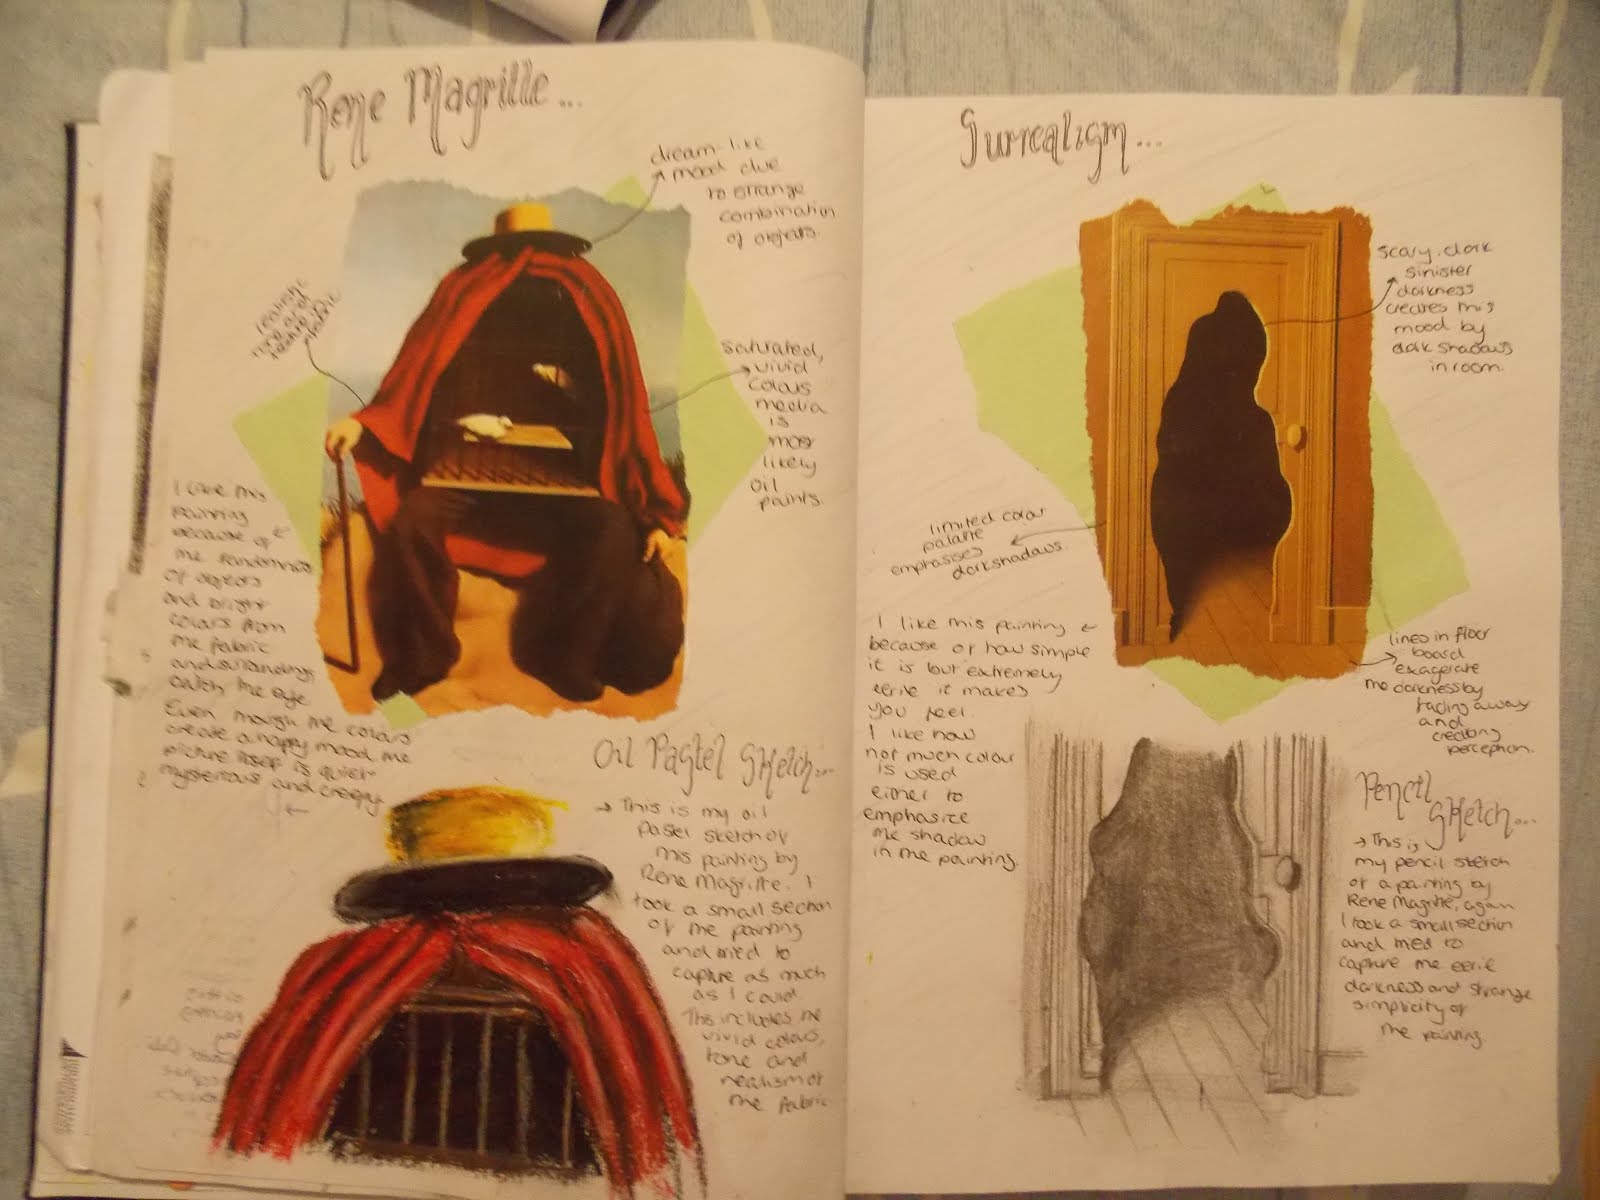 Rene Magritte...
dream-like
mood due
to strange
combination
of objects.
realistic
fabric
saturated,
vivid
colours
media
is
most
likely
oil
paints.
I like this
painting
because of
the randomness
of objects
and bright
colours from
the fabric
and surroundings
catch the eye.
Even though the colours
create a happy mood the
picture itself is quiet
mysterious and creepy
Oil Pastel Sketch...
→ This is my oil
Pastel sketch of
this painting by
Rene Magritte. I
took a small section
of the painting
and tried to
capture as much
as I could.
This includes the
vivid colours,
tone and
realism of
the fabric
Surrealism...
scary, dark
sinister
darkness
creates this
mood by
dark shadows
in room.
limited colour
palatte
emphasises
dark shadows.
I like this painting
because of how simple
it is but extremely
eerie it makes
you feel.
I like how
not much colour
is used
either to
emphasize
the shadow
in the painting.
lines in floor
board
exagerate
the darkness by
fading away
and
creating
perception.
Pencil
Sketch...
→ This is
my pencil sketch
of a painting by
Rene Magritte, again
I took a small section
and tried to
capture the eerie
darkness and strange
simplicity of
the painting.